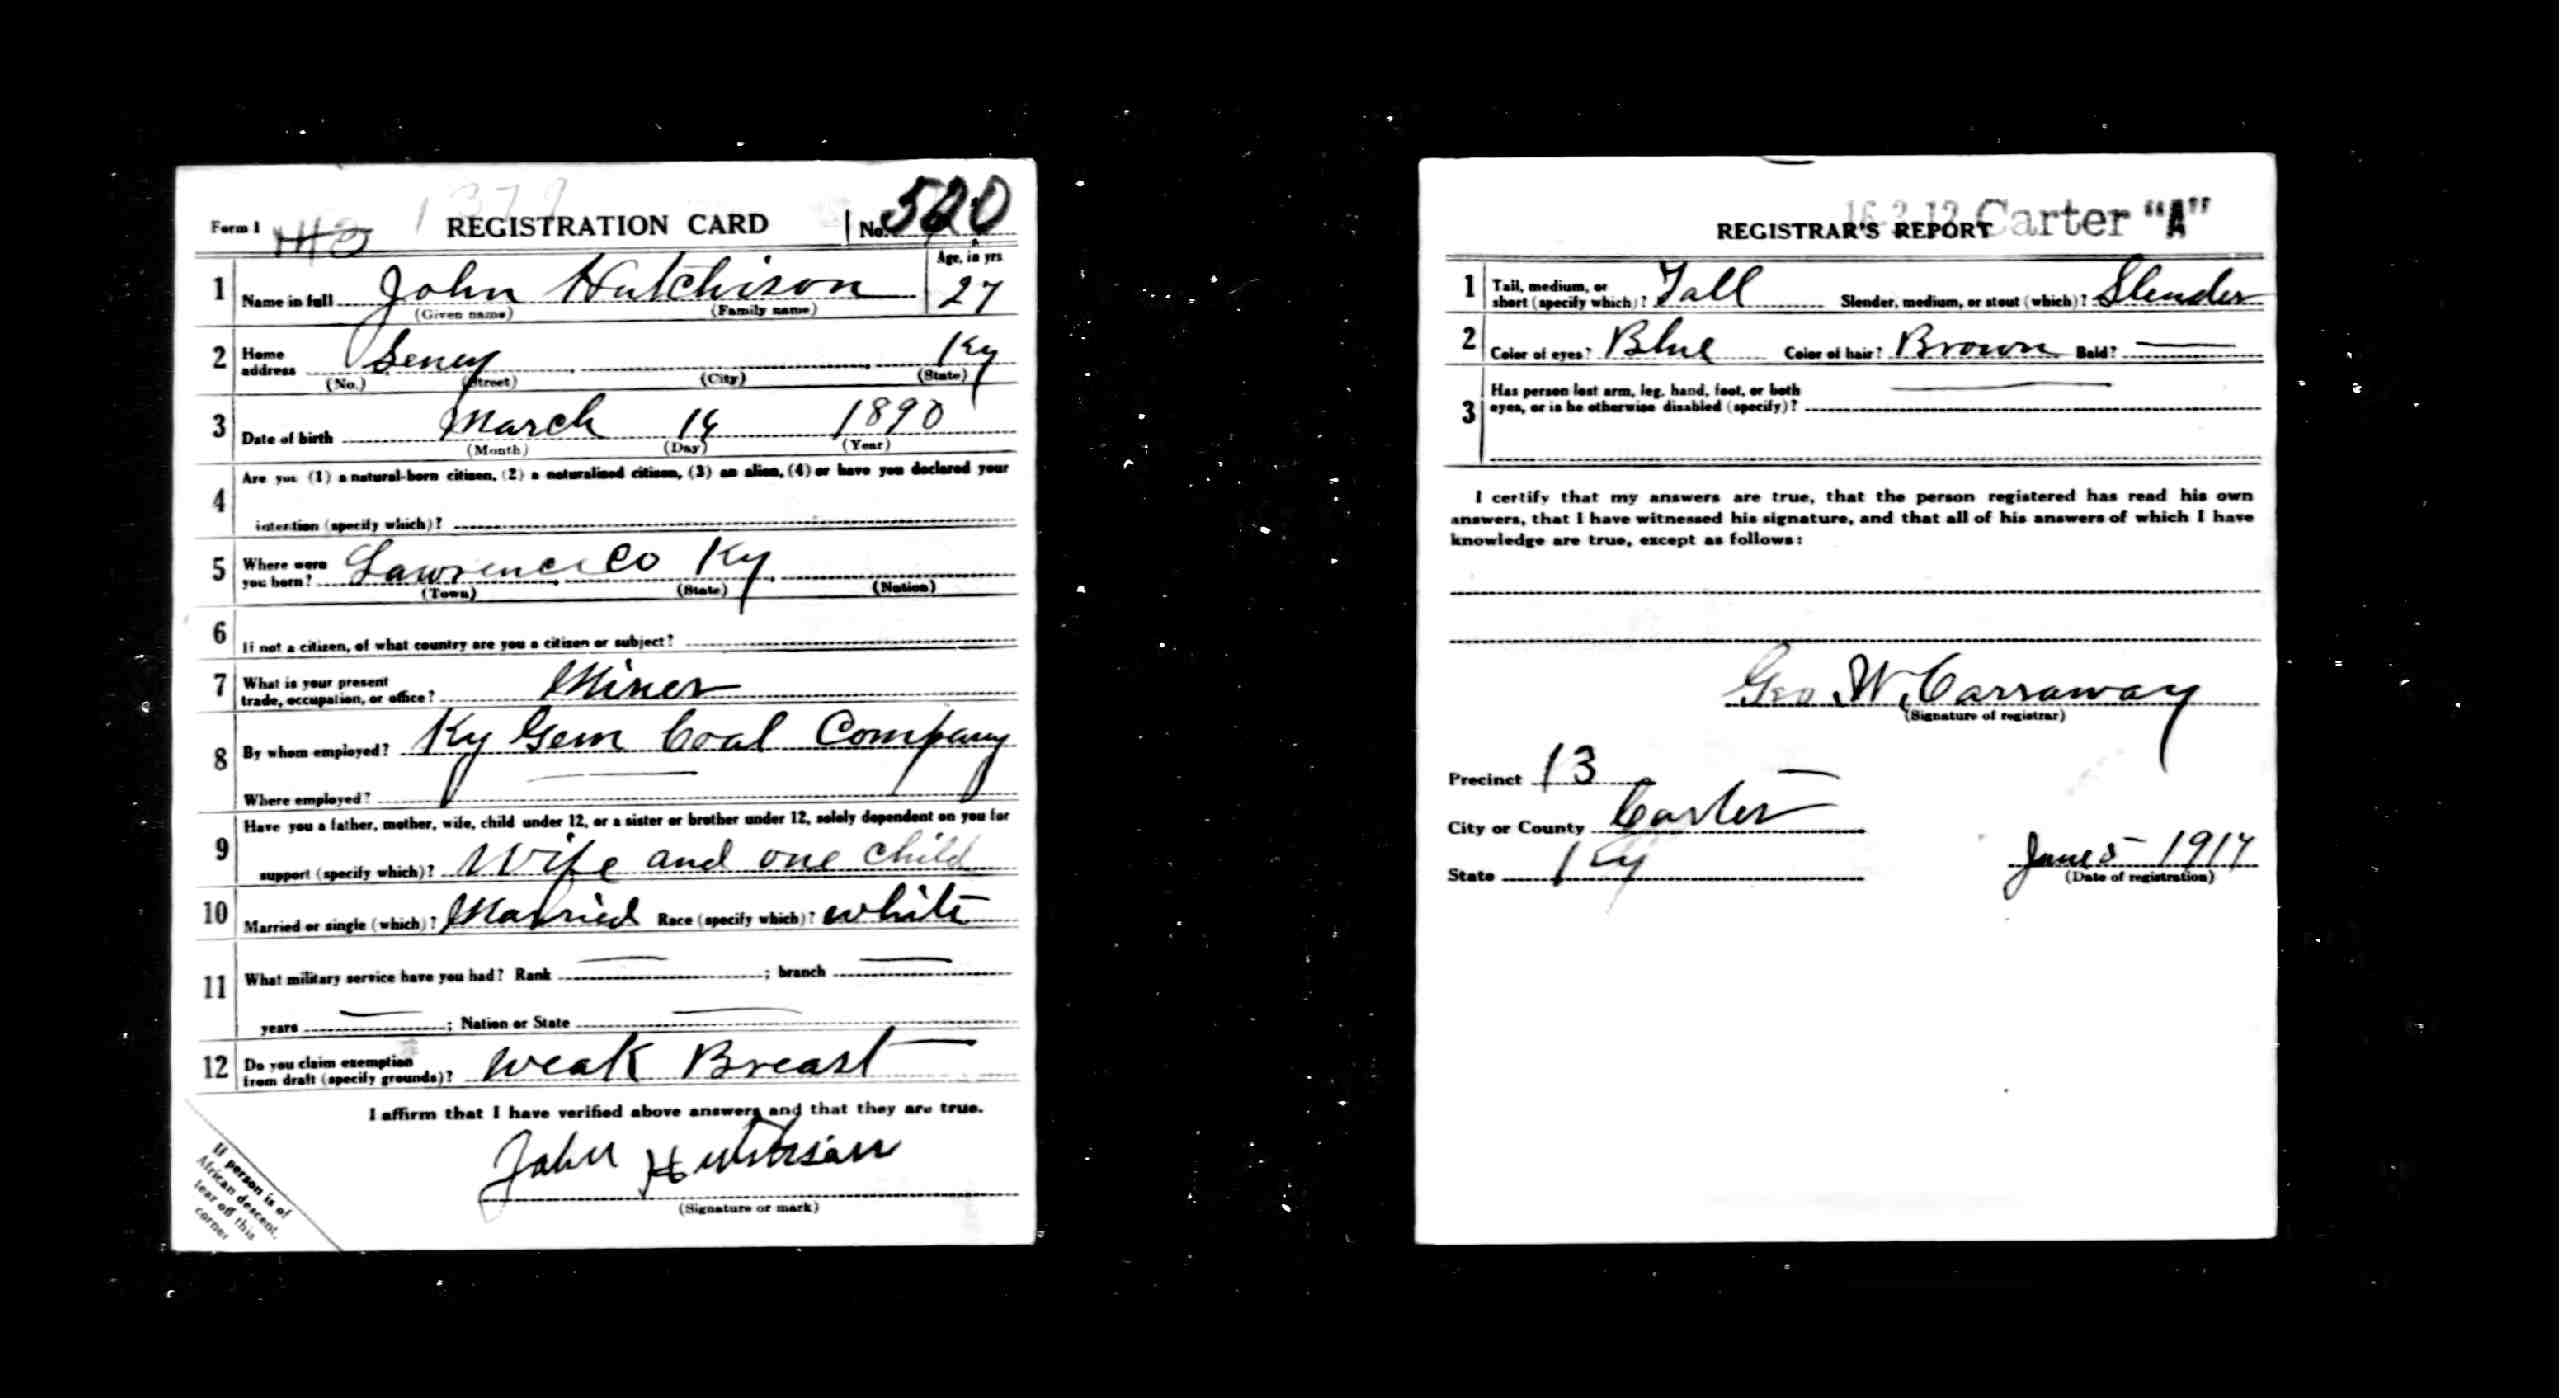 Form 1 1379 REGISTRATION CARD No. 520
Age, in yrs
1 Name in full John Hutchison 27
(Given name) (Family name)
2 Home address Seney Ky
(No.) (Street) (City) (State)
3 Date of birth March 14 1890
(Month) (Day) (Year)
4 Are you (1) a natural-born citizen, (2) a naturalized citizen, (3) an alien, (4) or have you declared your
intention (specify which)?
5 Where were you born? Lawrence Co Ky
(Town) (State) (Nation)
6 If not a citizen, of what country are you a citizen or subject?
7 What is your present trade, occupation, or office? Miner
8 By whom employed? Ky Gem Coal Company
Where employed? —
9 Have you a father, mother, wife, child under 12, or a sister or brother under 12, solely dependent on you for
support (specify which)? Wife and one child
10 Married or single (which)? Married Race (specify which)? white
11 What military service have you had? Rank — ; branch —
years — ; Nation or State —
12 Do you claim exemption from draft (specify grounds)? weak Breast
I affirm that I have verified above answers and that they are true.
John Hutchison
(Signature or mark)
If person is of
African descent,
tear off this
corner
16-3-12 Carter "A"
REGISTRAR'S REPORT
1 Tall, medium, or short (specify which)? Tall Slender, medium, or stout (which)? Slender
2 Color of eyes? Blue Color of hair? Brown Bald? —
3 Has person lost arm, leg, hand, foot, or both
eyes, or is he otherwise disabled (specify)? —
I certify that my answers are true, that the person registered has read his own
answers, that I have witnessed his signature, and that all of his answers of which I have
knowledge are true, except as follows:
Geo. W. Carraway
(Signature of registrar)
Precinct 13
City or County Carter
State Ky
June 5 1917
(Date of registration)